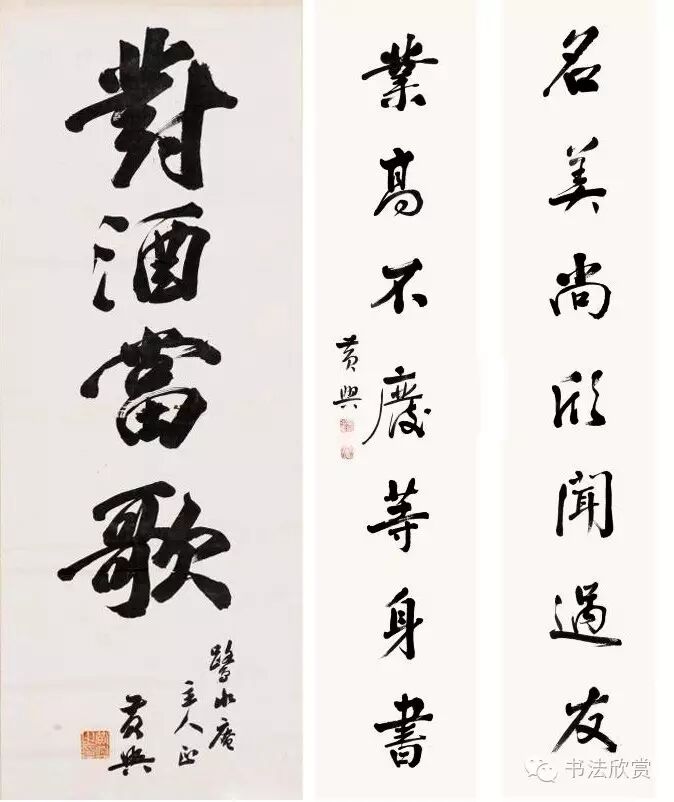 對酒當歌
水庵
主人正
黃興
名美尚欣聞過友
業高不廢等身書
黃興
书法欣赏